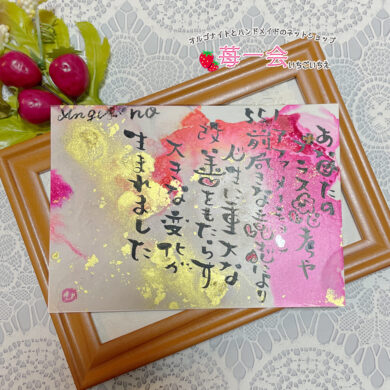 オルゴナイトとハンドメイドのネットショップ
苺一会
いちごいちえ
あなたの
プラス思考や
アファメーション
前向きな試みにより
人生に重大な
改善をもたらす
大きな変化が
生まれました